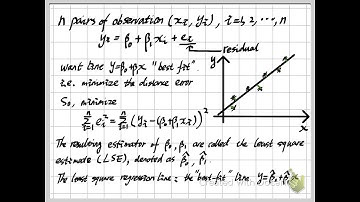 n pairs of observation (xi, yi), i=1, 2, ⋯, n
yi = β0 + β1 xi + ei
residual
want line y=β0+β1x "best fit".
i.e. minimize the distance error
So, minimize
n∑i=1 ei² = n∑i=1 (yi - (β0+β1xi))²
y
x
The resulting estimator of β0, β1 are called the least square
estimate (LSE), denoted as β̂0, β̂1.
The least square regression line : the "best-fit" line y=β̂0+β̂1x